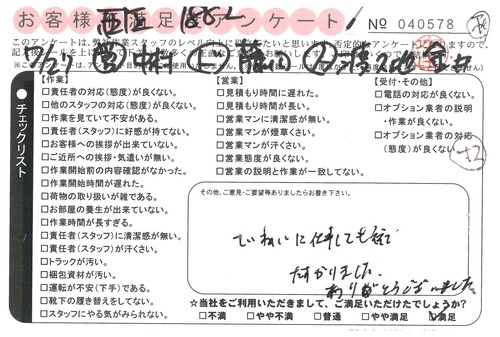 お客様 満足 アンケート
西区 1882
No 040578
このアンケートは、弊
※こ
チェックリスト
【作業】
□責任者の対応(態度)が良くない。
□他のスタッフの対応(態度)が良くない。
□作業を見ていて不安がある。
□責任者(スタッフ)に好感が持てない。
□お客様への挨拶が出来ていない。
□ご近所への挨拶・気遣いが無い。
□作業開始前の内容確認がなかった。
□作業開始時間が遅れた。
□荷物の取り扱いが雑である。
□お部屋の養生が出来ていない。
□作業時間が長すぎる。
□責任者(スタッフ)に清潔感が無い。
□責任者(スタッフ)が汗くさい。
□トラックが汚い。
□梱包資材が汚い。
□運転が不安(下手)である。
□靴下の履き替えをしてない。
□スタッフにやる気がみられない。
【営業】
□見積もり時間に遅れた。
□見積もり時間が長い。
□営業マンに清潔感が無い。
□営業マンが煙草くさい。
□営業マンが汗くさい。
□営業態度が良くない。
□営業の説明と作業が一致してない。
【受付・その他】
□電話の対応が良くない。
□オプション業者の説明
・作業が良くない。
□オプション業者の対応
(態度)が良くない。
その他、ご意見・ご要望等ありましたらお書き下さい。
ていねいに仕事しても
たすかりました
ありがとうございました
☆当社をご利用いただきまして、ご満足いただけたでしょうか?
□不満 □やや不満 □普通 □やや満足 □満足